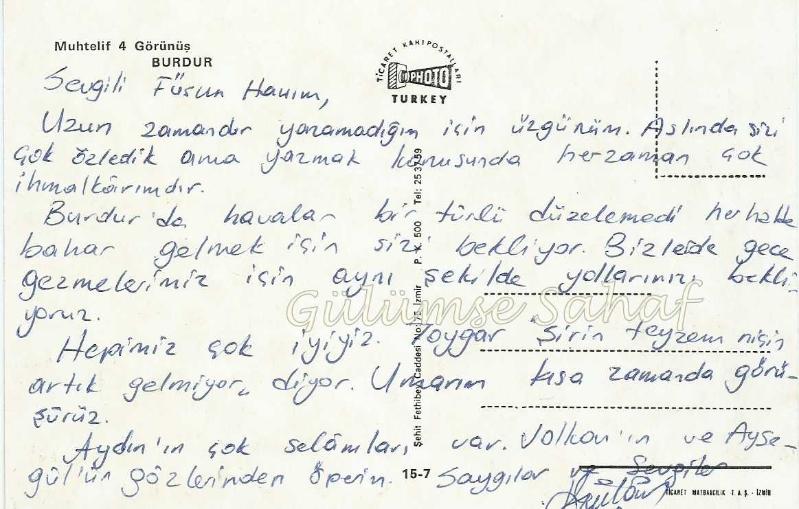 Muhtelif 4 Görünüş
BURDUR
TİCARET KARTPOSTALLARI
PHOTO
TURKEY
Sevgili Füsun Hanım,
Uzun zamandır yazamadığım için üzgünüm. Aslında sizi
çok özledik ama yazmak konusunda herzaman çok
ihmalkârımdır.
Burdur'da havalar bir türlü düzelemedi herhalde
bahar gelmek için sizi bekliyor. Bizlerde gece
gezmelerimiz için aynı şekilde yollarınızı bekli-
yoruz.
Hepimiz çok iyiyiz. Toygar "Şirin teyzem niçin
artık gelmiyor" diyor. Umarım kısa zamanda görü-
şürüz.
Aydın'ın çok selâmları var. Volkan'ın ve Ayşe-
gül'ün gözlerinden öperim. Saygılar ve Sevgiler
Şehit Fethibey Caddesi No: 75 İzmir P. K. 500 Tel: 25 37 59
Gülümse Sahaf
15-7
TİCARET MATBAACILIK T.A.Ş. - İZMİR